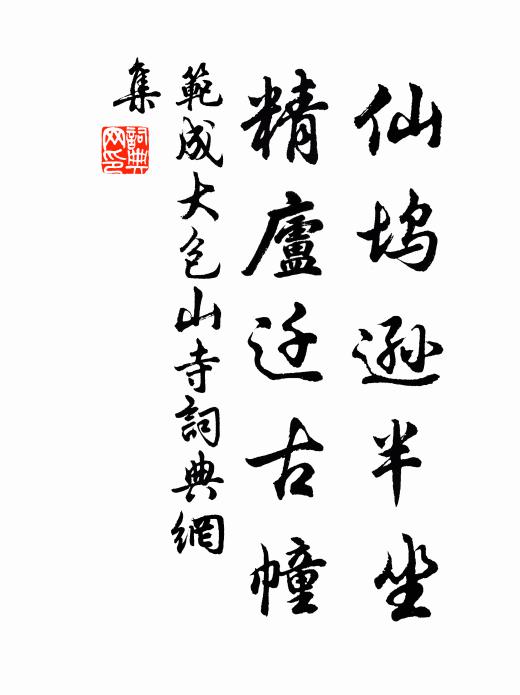 仙坞遜半坐
精廬迁古幢
範成大包山寺詞典網
集
詞典
网印